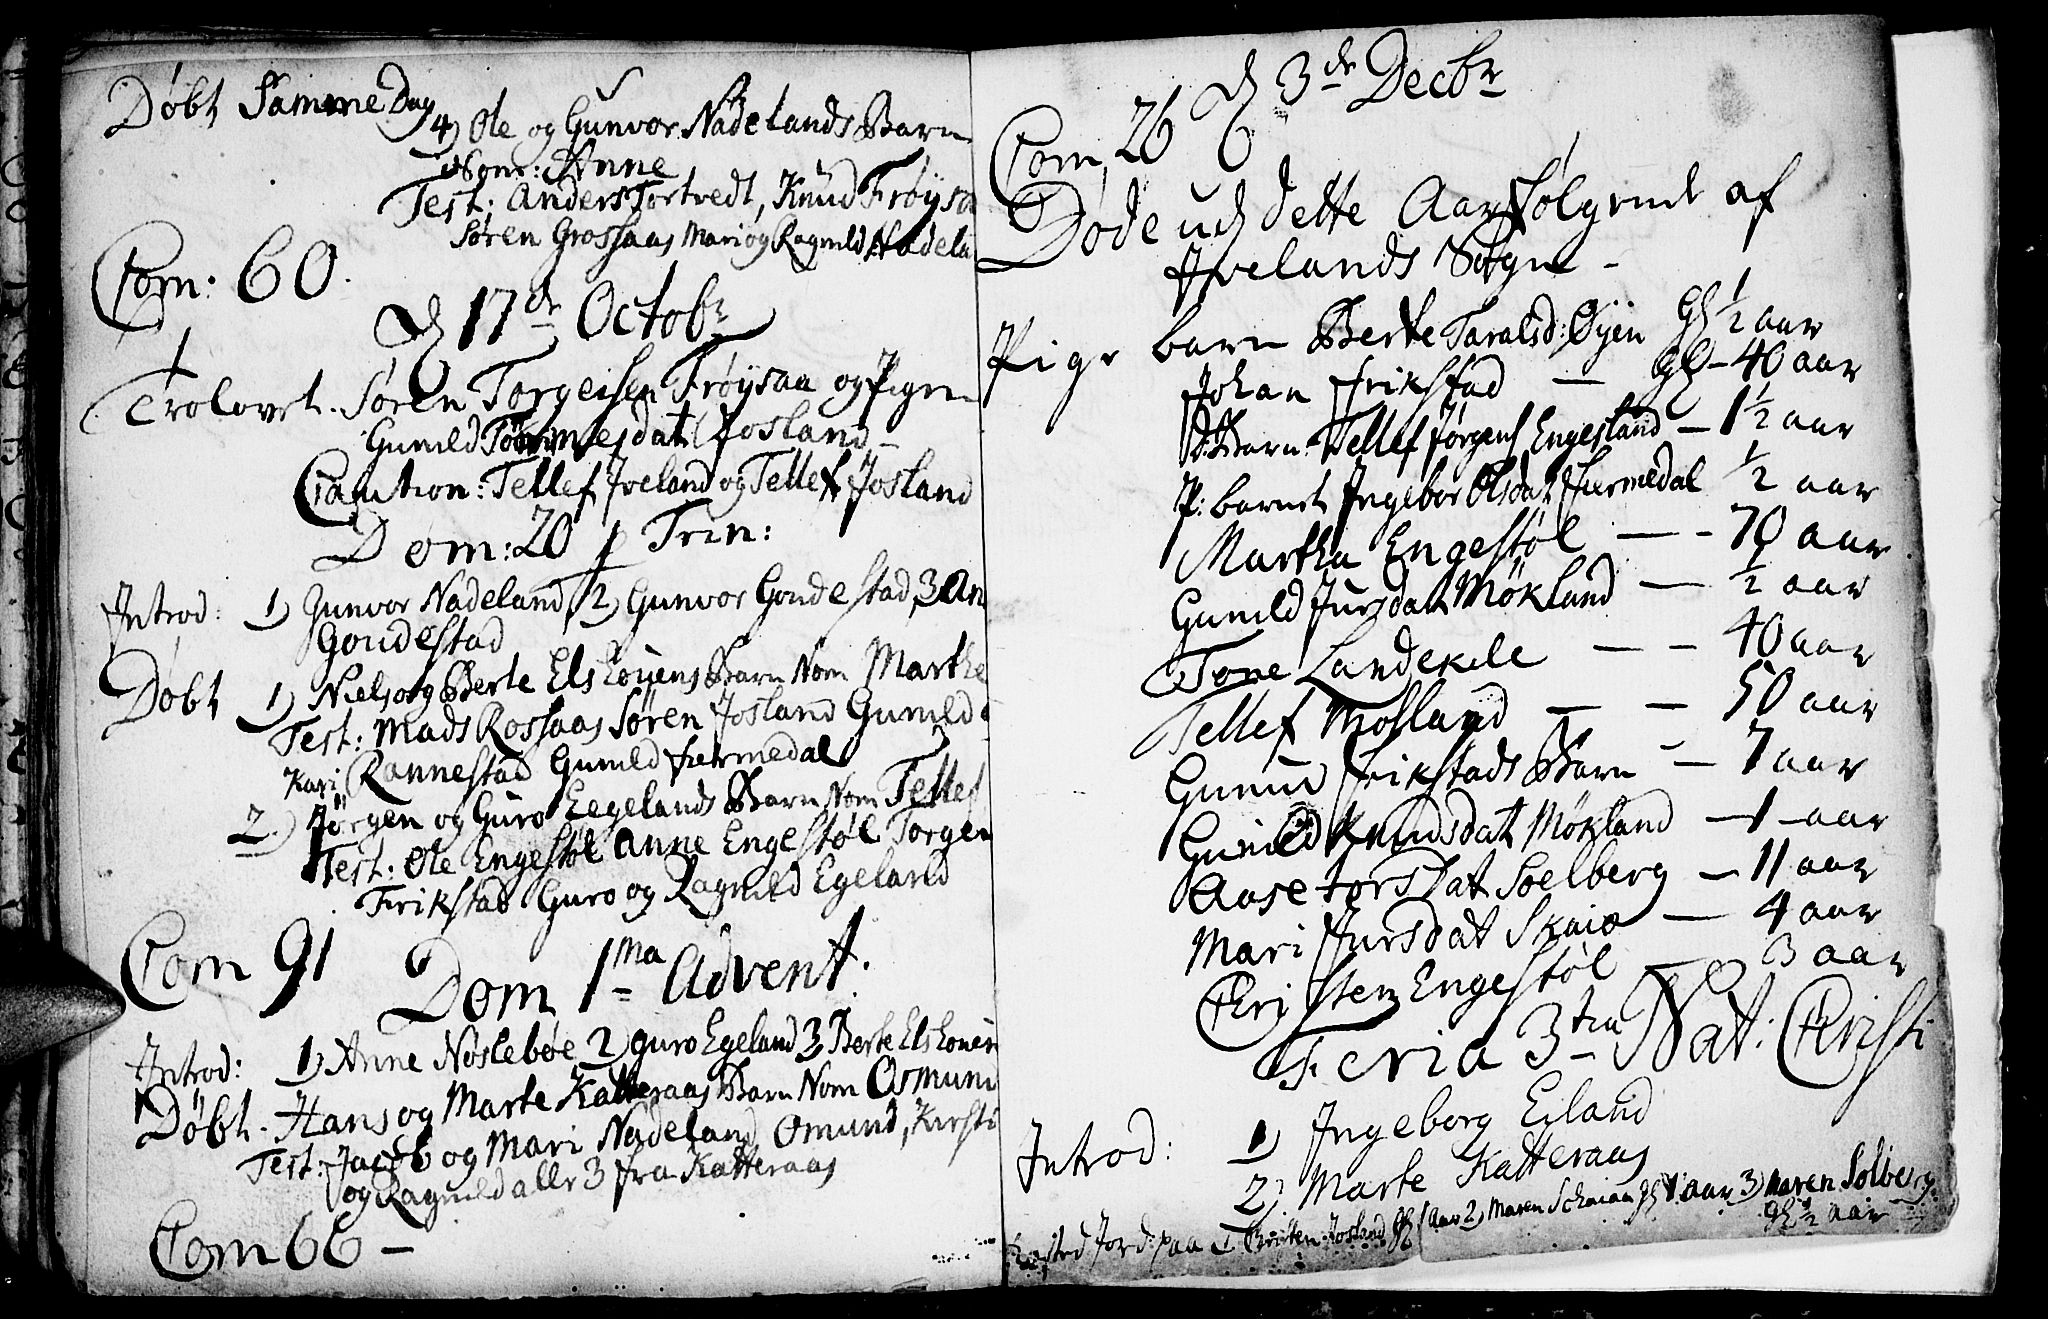 Døbt Samme Dag
4) Ole og Gunvor Nadelands Barn
Nom: Anne
Test: Anders Tortvedt, Knud Frøysa
Søren Grossaas Mari og Ragnild Nadela
Com: 60.
D 17de Octobr
Trolovet. Søren Torgeisen Frøysaa og Pigen
Gunild Tommesdat Josland -
Caution: Tellef Iveland og Tellef Josland
Dom: 20 p Trin:
Introd: 1) Gunvor Nadeland, 2) Gunvor Gondestad, 3 An
Goudestad
Døbt 1) Niels og Berte Els Barn Nom Marthe
Test: Mads Rossaas Søren Josland Gunild
Kari Rannestad Gunild Fiermedal
2.) Jørgen og Guro Eegelands Barn Nom Tellef
Test: Ole Engestøl Anne Engestøl Torgen
Frikstad Guro og Ragnild Egeland
Com 91
Dom 1ma Advent.
Introd: 1) Anne Nøslebøe 2) guro Egeland 3 Berte Els
Døbt. Hans og Marte Katteraas Barn Nom Osmund
Test: Jacob og Mari Nadeland Omund, Kirsti
og Ragnild alle 3 fra Katteraas
Com 66 -
D 3de Decbr
Com, 26
Døde udj dette Aar følgende af
Ivelands Sogn -
Pige barn Berte Taralsd: Øyen Gl ½ aar
Johan Frikstad — gl - 40 aar
D: Barn Tellef Jørgens Engesland - 1½ aar
P: barnet Ingebor Olsdat Fiermedal ½ aar
Martha Engestøl — - 70 aar
Gunild Jursdat Møkland — ½ aar
Tone Landekile — — 40 aar
Tellef Mosland — — 50 aar
Gunud Frikstads Barn — 7 aar
Gunild Knudsdat Møkland — 1 - aar
Aase Torsdat Soelberg — 11 aar
Mari Jursdat Skaio — 4 aar
Christen Engestøl — 3 aar
Feria 3tia Nat: Christi
Introd: 1) Ingeborg Eiland
2) Marte Katteraas
Kasted Jord paa 1 Josland gl 1 Aar 2) Maren Schaiaa gl 1 aar 3) Maren Solberg
gl ½ aar